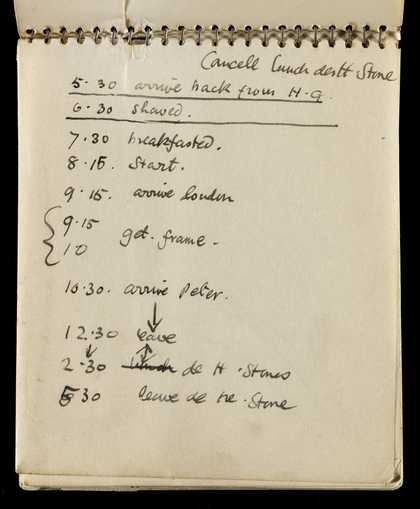 Cancell lunch desth Stone
5·30 arrive back from H-G.
6·30 shaved.
7·30 breakfasted.
8·15. Start.
9·15. arrive london
9·15
10 get frame.
10·30. arrive Peter.
12·30 leave
2·30 lunch de H·Stones
530 leave de he·Stone